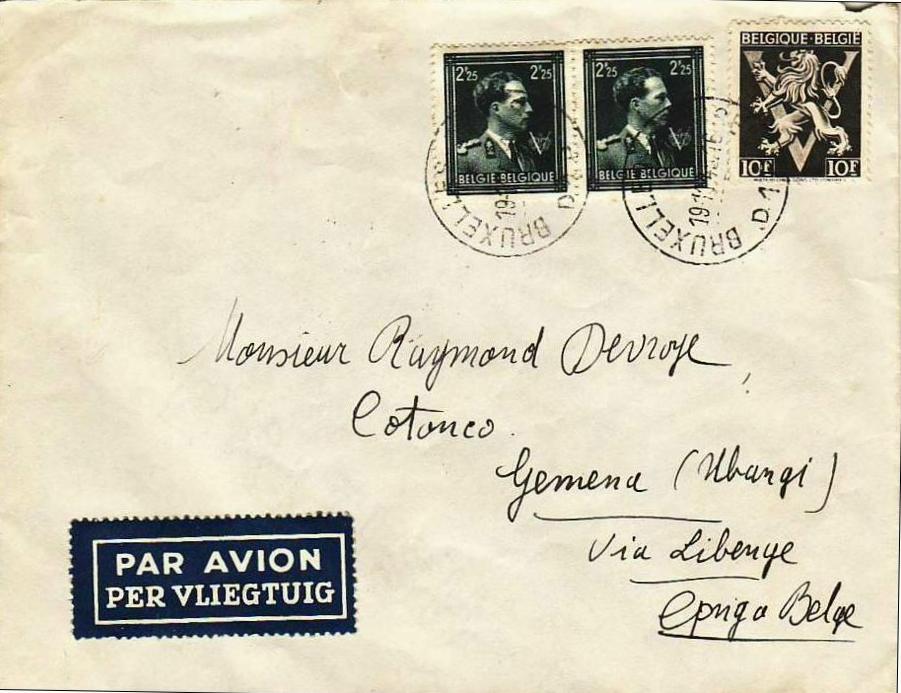 2F25 2F25
BELGIE·BELGIQUE
2F25 2F25
BELGIE·BELGIQUE
BELGIQUE·BELGIË
10F 10F
BRUXELLES
19-1
BRUXELLE
19-11
D.1
Monsieur Raymond Devroye,
Cotonco.
Gemena (Ubangi)
Via Libenge
Congo Belge
PAR AVION
PER VLIEGTUIG